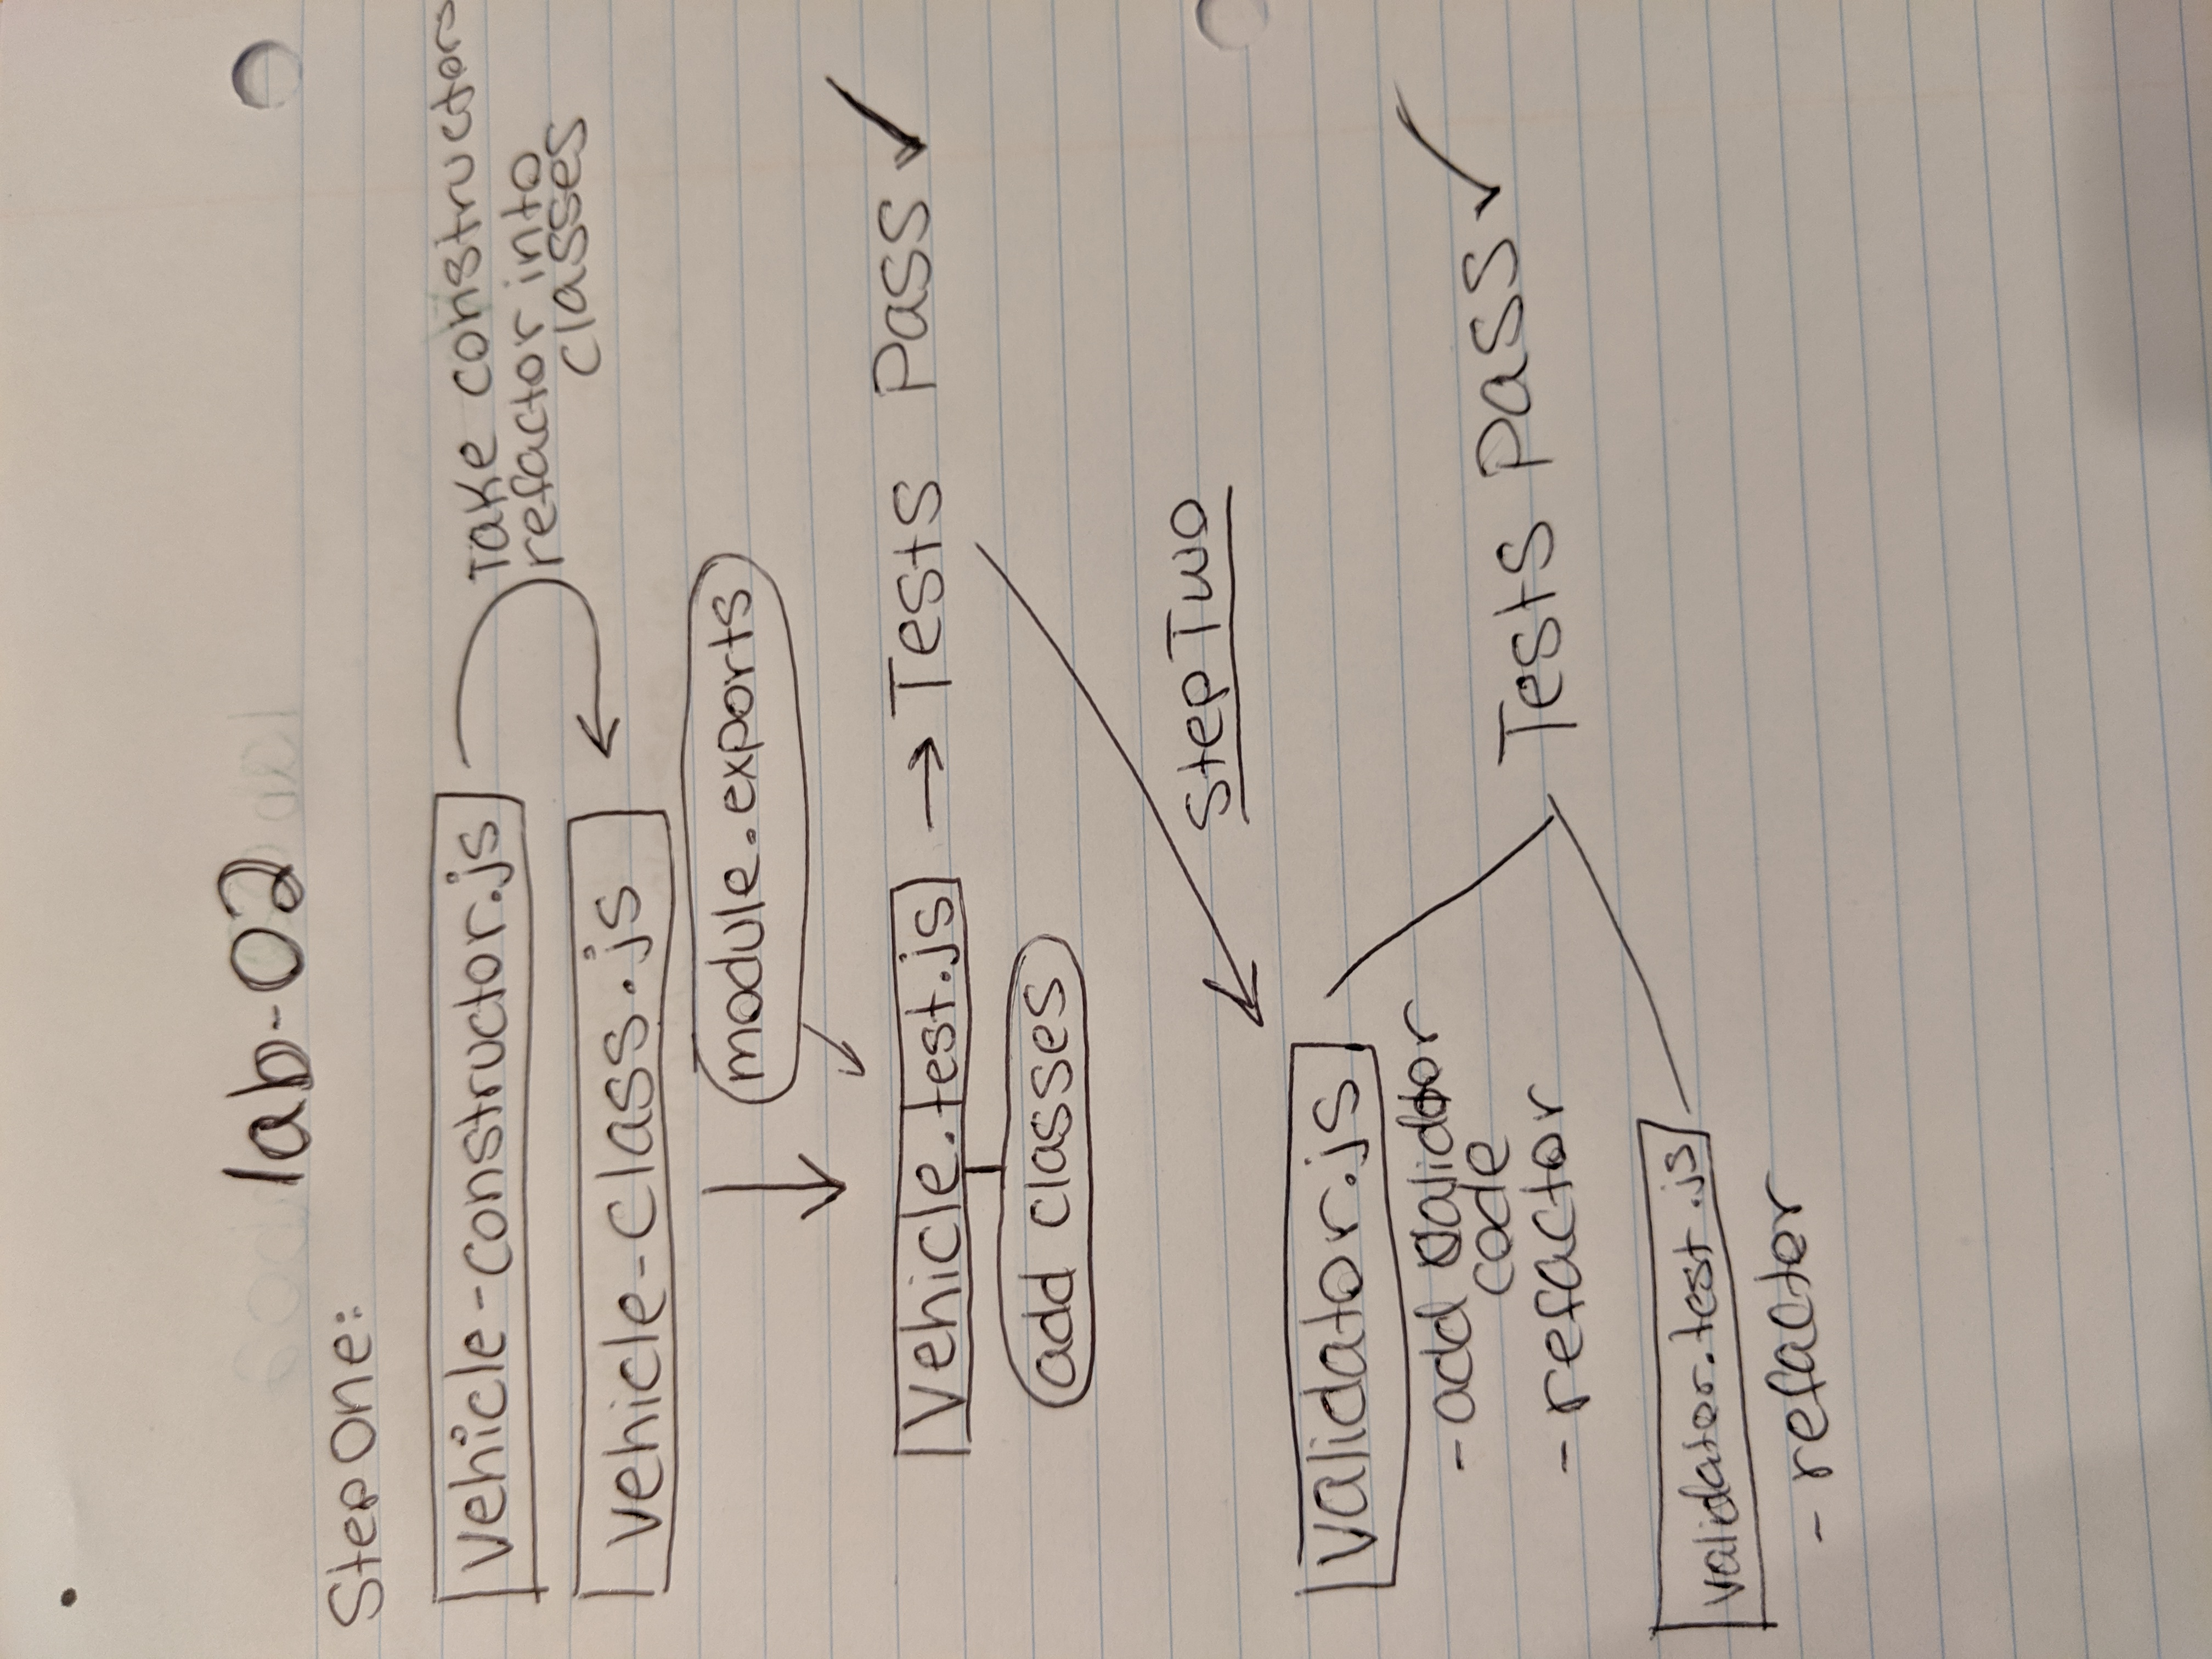 lab-02
Step One:
vehicle-constructor.js
Take constructors
refactor into
classes
vehicle-class.js
module.exports
Vehicle.test.js → Tests Pass ✓
add classes
Step Two
validator.js
- add validtor
code
- refactor
Tests Pass ✓
validator.test.js
- refactor